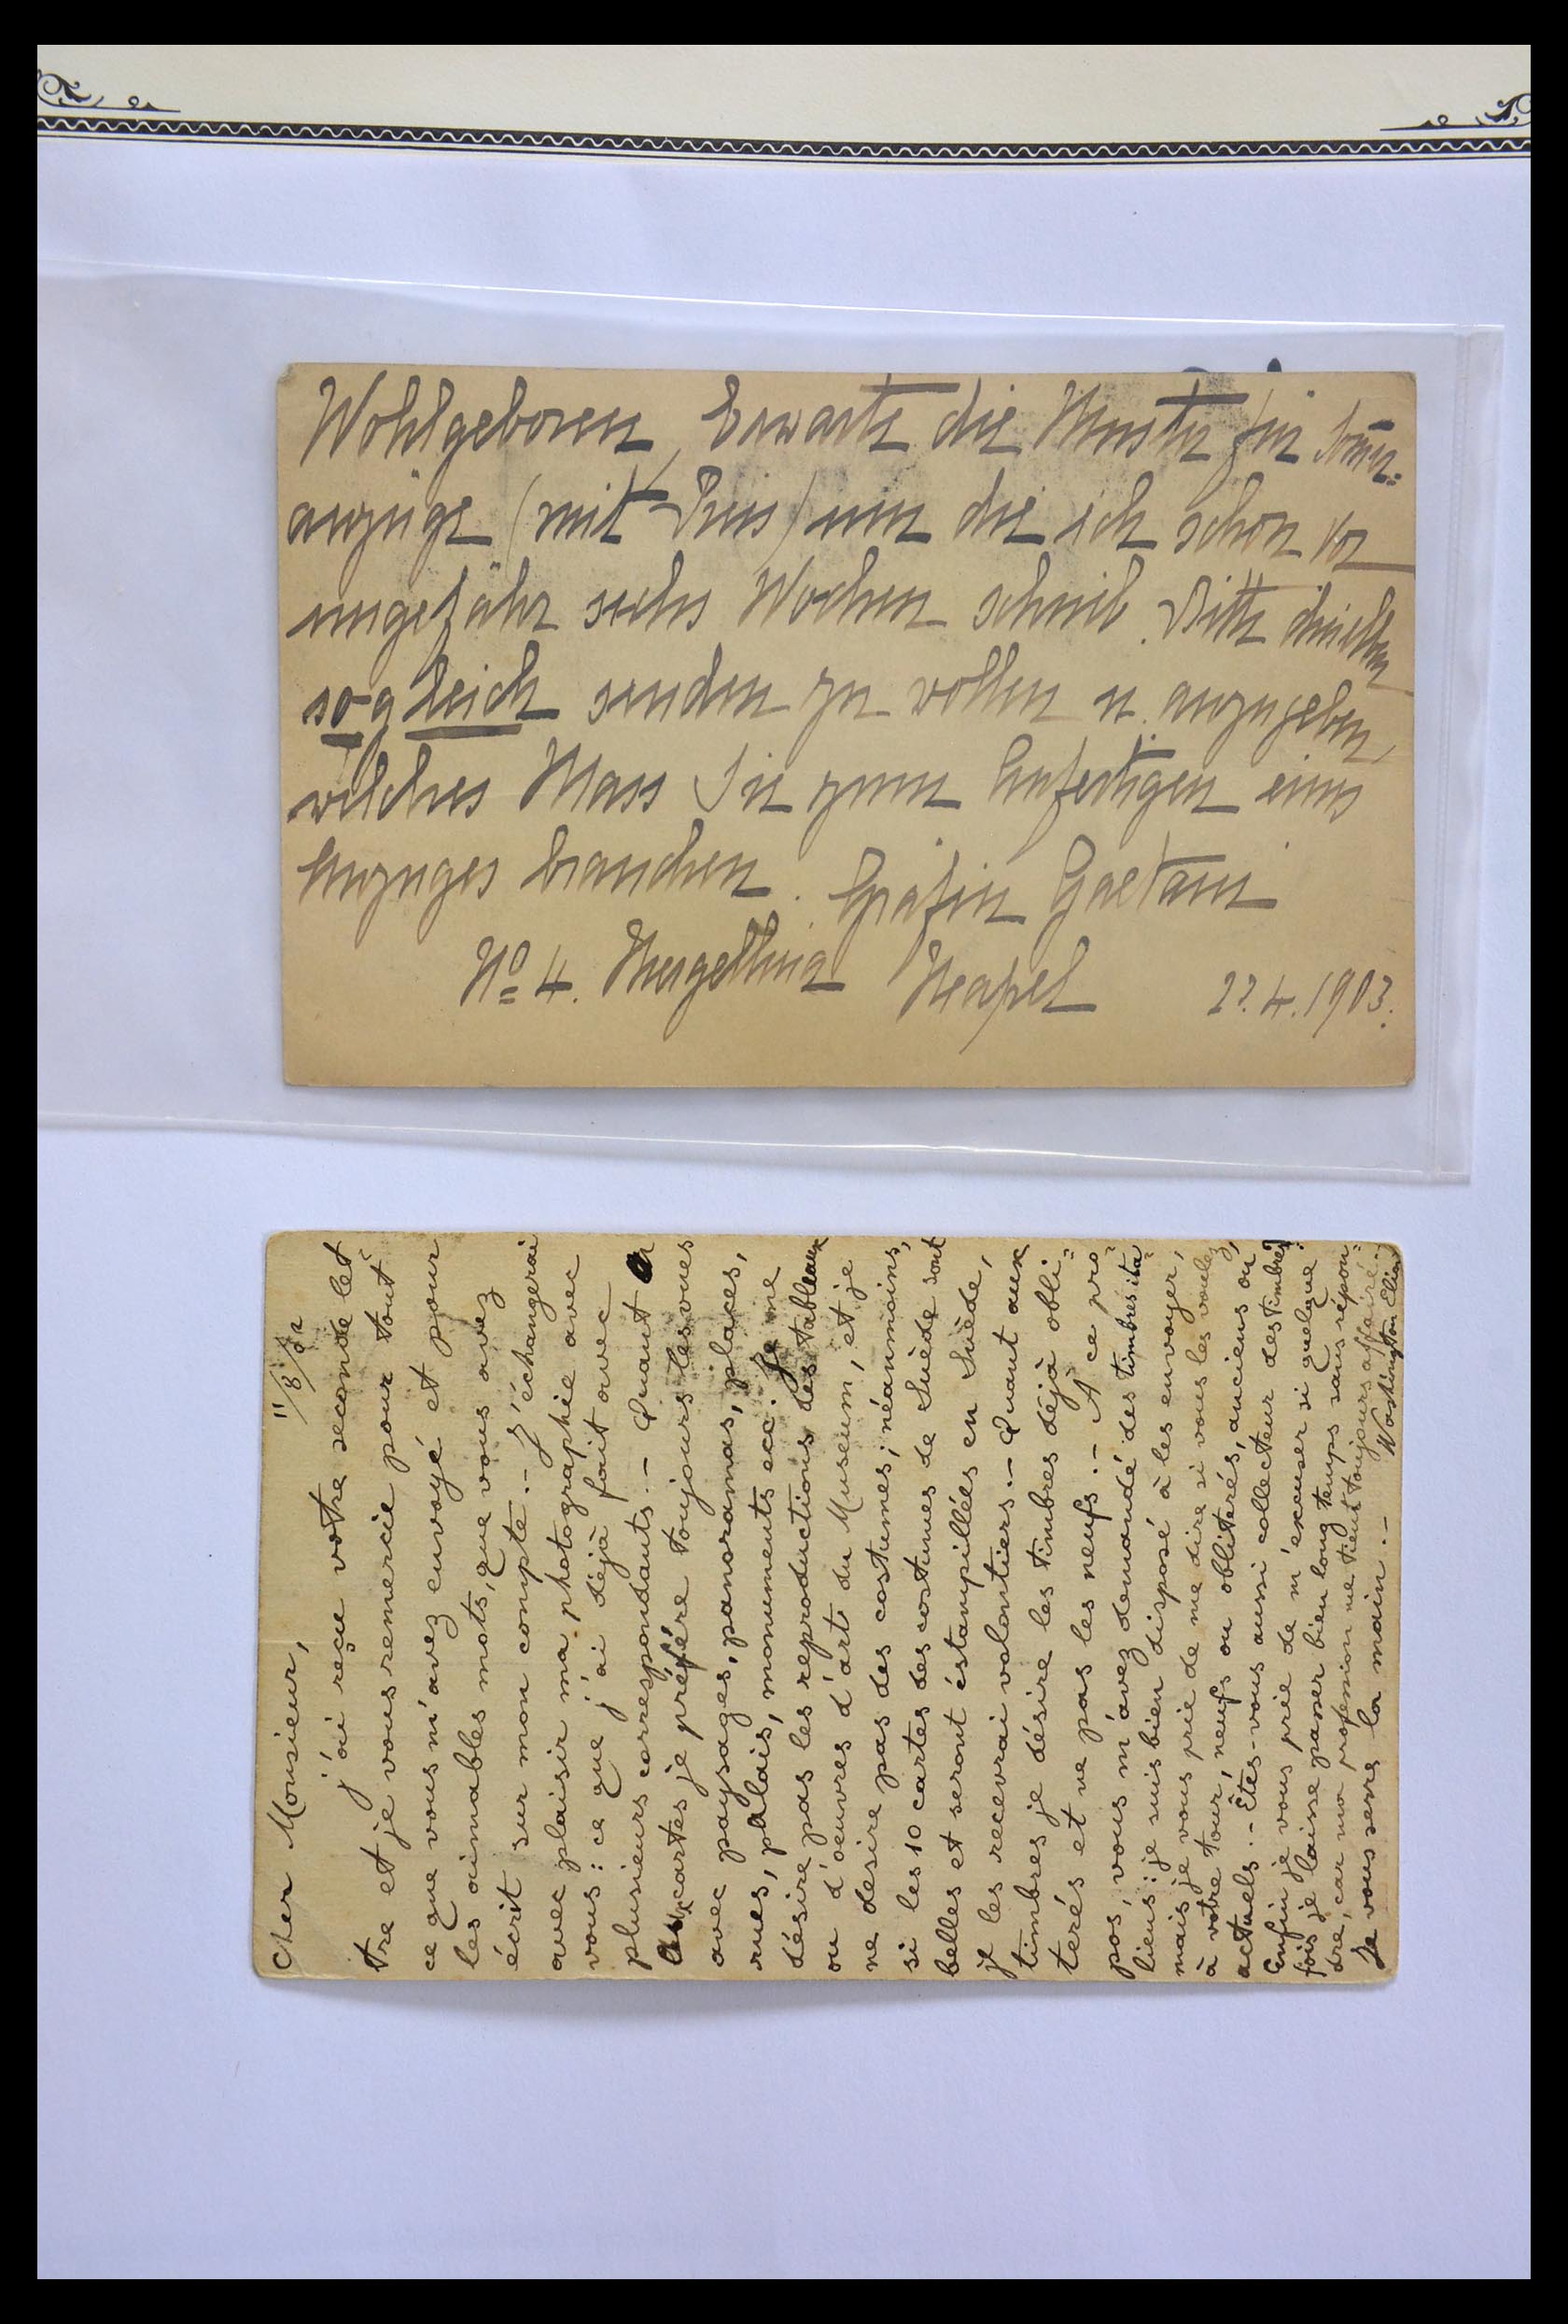 Wohlgeboren, Erwarte die Muster für Som̄er=
anzüge (mit Preis) um die ich schon vor
ungefähr sechs Wochen schrieb. Bitte dieselben
sogleich senden zu wollen u. anzugeben,
welches Mass Sie zum Anfertigen eines
Anzuges brauchen. Gräfin Gaetani
Nº 4. Mergellina Neapel 22.4.1903.
Cher Monsieur, 11/8/
j'ai reçue votre seconde let=
tre et je vous remercie pour tout
ce que vous m'avez envoyé et pour
les aimables mots, que vous avez
écrit sur mon compte.- J'échangerai
avec plaisir ma photographie avec
vous: ce que j'ai déjà fait avec
plusieurs correspondants.- Quant
aux cartes je préfère toujours les vues
avec paysages, panoramas, places,
rues, palais, monuments ecc. Je ne
désire pas les reproductions des tableaux
ou d'oeuvres d'art du Museum, et je
ne desire pas des costumes; néanmoins,
si les 10 cartes des costumes de Suède sont
belles et seront éstampillées en Suède,
je les recevrai volontiers.- Quant aux
timbres je désire les timbres déjà obli=
terés et ne pas les neufs.- A ce pro=
pos, vous m'avez demandé des timbres ita=
liens: je suis bien disposé à les envoyer,
mais je vous prie de me dire si vous les voulez,
à votre tour, neufs ou oblitérés, anciens ou
actuels.- Êtes-vous aussi collecteur des timbres?
Enfin je vous prie de m'excuser si quelque=
fois je laisse passer bien long temps sans répon=
dre, car ma profession me tient toujours affairé.-
Je vous serre la main.- Washington Elia